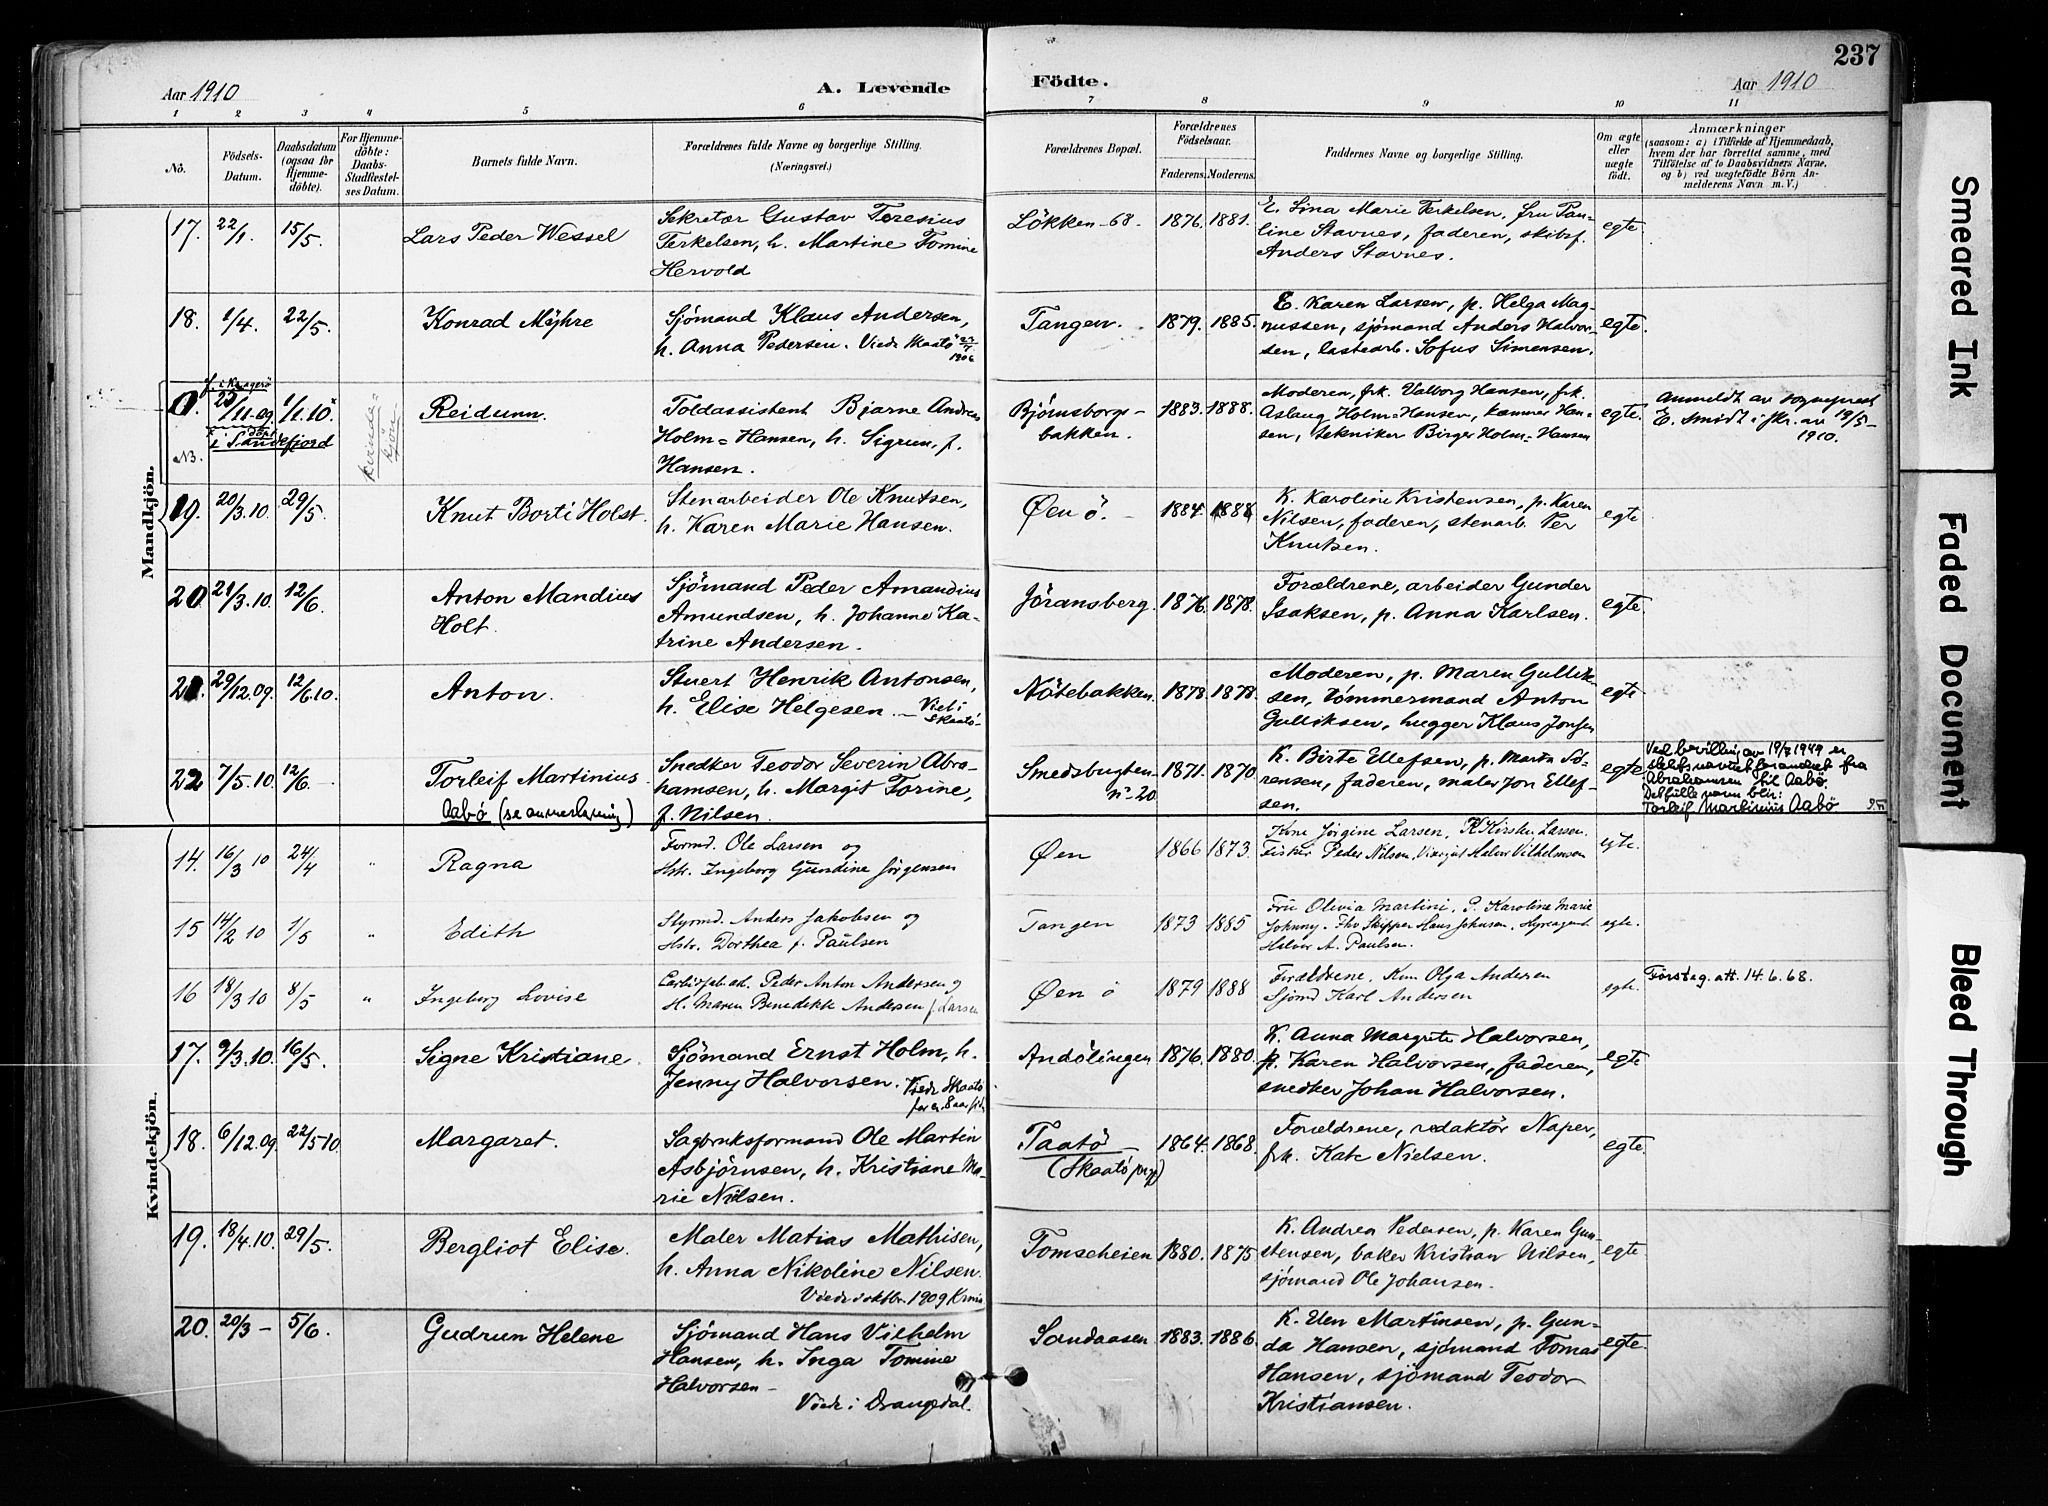 237
Aar 1910
A. Levende
Födte.
Aar 1910
1 2 3 4 5 6 7 8 9 10 11
No.
Födsels-
Datum.
Daabsdatum
(ogsaa for
Hjemme-
döbte).
For Hjemme-
döbte:
Daabs-
Stadfæstel-
ses Datum.
Barnets fulde Navn.
Forældrenes fulde Navne og borgerlige Stilling.
(Næringsvei.)
Forældrenes Bopæl.
Forældrenes
Födselsaar.
Faderens. Moderens.
Faddernes Navne og borgerlige Stilling.
Om ægte
eller
uægte
födt.
Anmærkninger
(saasom: a) i Tilfælde af Hjemmedaab,
hvem der har forrettet samme, med
Tilföielse af to Daabsvidners Navne,
og b) ved uægtefödte Börn An-
melderens Navn m. V.)
Mandkjön.
17. 22/1. 15/5. Lars Peder Wessel
Sekretær Gustav Teresius
Terkelsen, h. Martine Tomine
Hervold
Lökken -68- 1876. 1881.
E. Lina Marie Terkelsen, fru Pau-
line Stavnes, faderen, skibsf.
Anders Stavnes.
egte
18. 1/4. 22/5. Konrad Myhre
Sjömand Klaus Andersen,
h. Anna Pedersen. Viede Skaatö
1906
Tangen. 1879. 1885.
E. Karen Larsen, p. Helga Mag-
nussen, sjömand Anders Halvor-
sen, lastearb. Sofus Simensen.
egte.
f. i Kragerö
/11-09 1/1.10.
döpt
i Sandefjord
NB.
kvinde-
kjön
Reidunn.
Toldassistent Bjarne Andreas
Holm=Hansen, h. Sigrun, f.
Hansen.
Björnsborgs-
bakken. 1883. 1888.
Moderen, frk. Valborg Hansen, frk.
Aslaug Holm=Hansen, kemner Han-
sen, tekniker Birger Holm=Hansen
egte.
Anmeldt av sogneprest
E. Smidt i skr. av 19/5-
1910.
19. 20/3.10. 29/5. Knut Borti Holst.
Stenarbeider Ole Knutsen,
h. Karen Marie Hansen.
Øen ö. 1884. 1888
K. Karoline Kristensen, p. Karen
Nilsen, faderen, stenarb. Per
Knutsen.
egte
20. 21/3.10. 12/6. Anton Mandius
Holt.
Sjömand Peder Amandius
Amundsen, h. Johanne Ka-
trine Andersen.
Jöransberg. 1876. 1878.
Forældrene, arbeider Gunder
Isaksen, p. Anna Karlsen.
egte.
21. 29/12.09. 12/6.10. Anton.
Stuert Henrik Antonsen,
h. Elise Helgesen. - Viet i
Skaatö-
Nötebakken. 1878. 1878.
Moderen, p. Maren Gullik-
sen, tömmermand Anton
Gulliksen, hugger Klaus Jonsen
egte
22 7/5.10. 12/6 - Torleif Martinius
Aabö (se anmerkning)
Snedker Teodor Severin Abra-
hamsen, h. Margit Torine,
f. Nilsen.
Smedsbugten-
nº 20 1871. 1870
K. Birte Ellefsen, p. Marta Sö-
rensen, faderen, maler Jon Ellef-
sen.
egte
Ved bevilling av 19/7 1949 er
slektsnavnet forandret fra
Abrahamsen til Aabö.
Det fulle navn blir:
Torleif Martinius Aabö
Kvindekjön.
14. 16/3 10 24/4 " Ragna
Formd. Ole Larsen og
Hstr. Ingeborg Gundine Jörgensen
Øen 1866 1873.
Kone Jörgine Larsen, P. Kirsten Larsen.
Fisker Peder Nilsen, Halvor Vilhelmsen
egte.
15 14/2 10 1/5 " Edith
Styrmd. Anders Jakobsen og
Hstr. Dorthea f. Paulsen
Tangen 1873 1885
Fru Olivia Martini, P. Karoline Marie
Johnny. Skipper Hans Johnsen.
Halvor A. Paulsen.
egte.
16 18/3 10 8/5 " Ingeborg Lovise
Peder Anton Andersen og
H. Maren Benedikte Andersen f. Larsen
Øen ö 1879 1888
Forældrene, Kone Olga Andersen
Sjömd Karl Andersen
egte.
Förstag. att. 14.6.68.
17. 9/3.10. 16/5. Signe Kristiane.
Sjömand Ernst Holm, h.
Jenny Halvorsen. Viede Skaatö
for ca. 8 aar siden
Andölingen 1876. 1880.
K. Anna Margrete Halvorsen,
p. Karen Halvorsen, faderen,
snedker Johan Halvorsen.
egte
18. 6/12.09. 22/5 10 Margaret.
Sagbruksformand Ole Martin
Asbjörnsen, h. Kristiane Ma-
rie Nilsen.
Taatö
(Skaatö prgj) 1864. 1868.
Forældrene, redaktör Naper,
frk. Kate Nielsen.
egte.
19. 18/4.10. 29/5. Bergliot Elise.
Maler Matias Mathisen,
h. Anna Nikoline Nilsen.
Viede i oktbr. 1909
Tomseheien 1880. 1875
K. Andrea Pedersen, p. Karen Gun-
stensen, baker Kristian Nilsen,
sjömand Ole Johansen.
egte
20. 20/3 - 5/6. Gudrun Helene
Sjömand Hans Vilhelm
Hansen, h. Inga Tomine
Halvorsen -
Viede i Drangedal.
Sandaasen 1883. 1886.
K. Elen Martinsen, p. Gun-
da Hansen, sjömand Tomas
Hansen, sjömand Teodor
Kristiansen.
egte.
Smeared Ink
Faded Document
Bleed Through